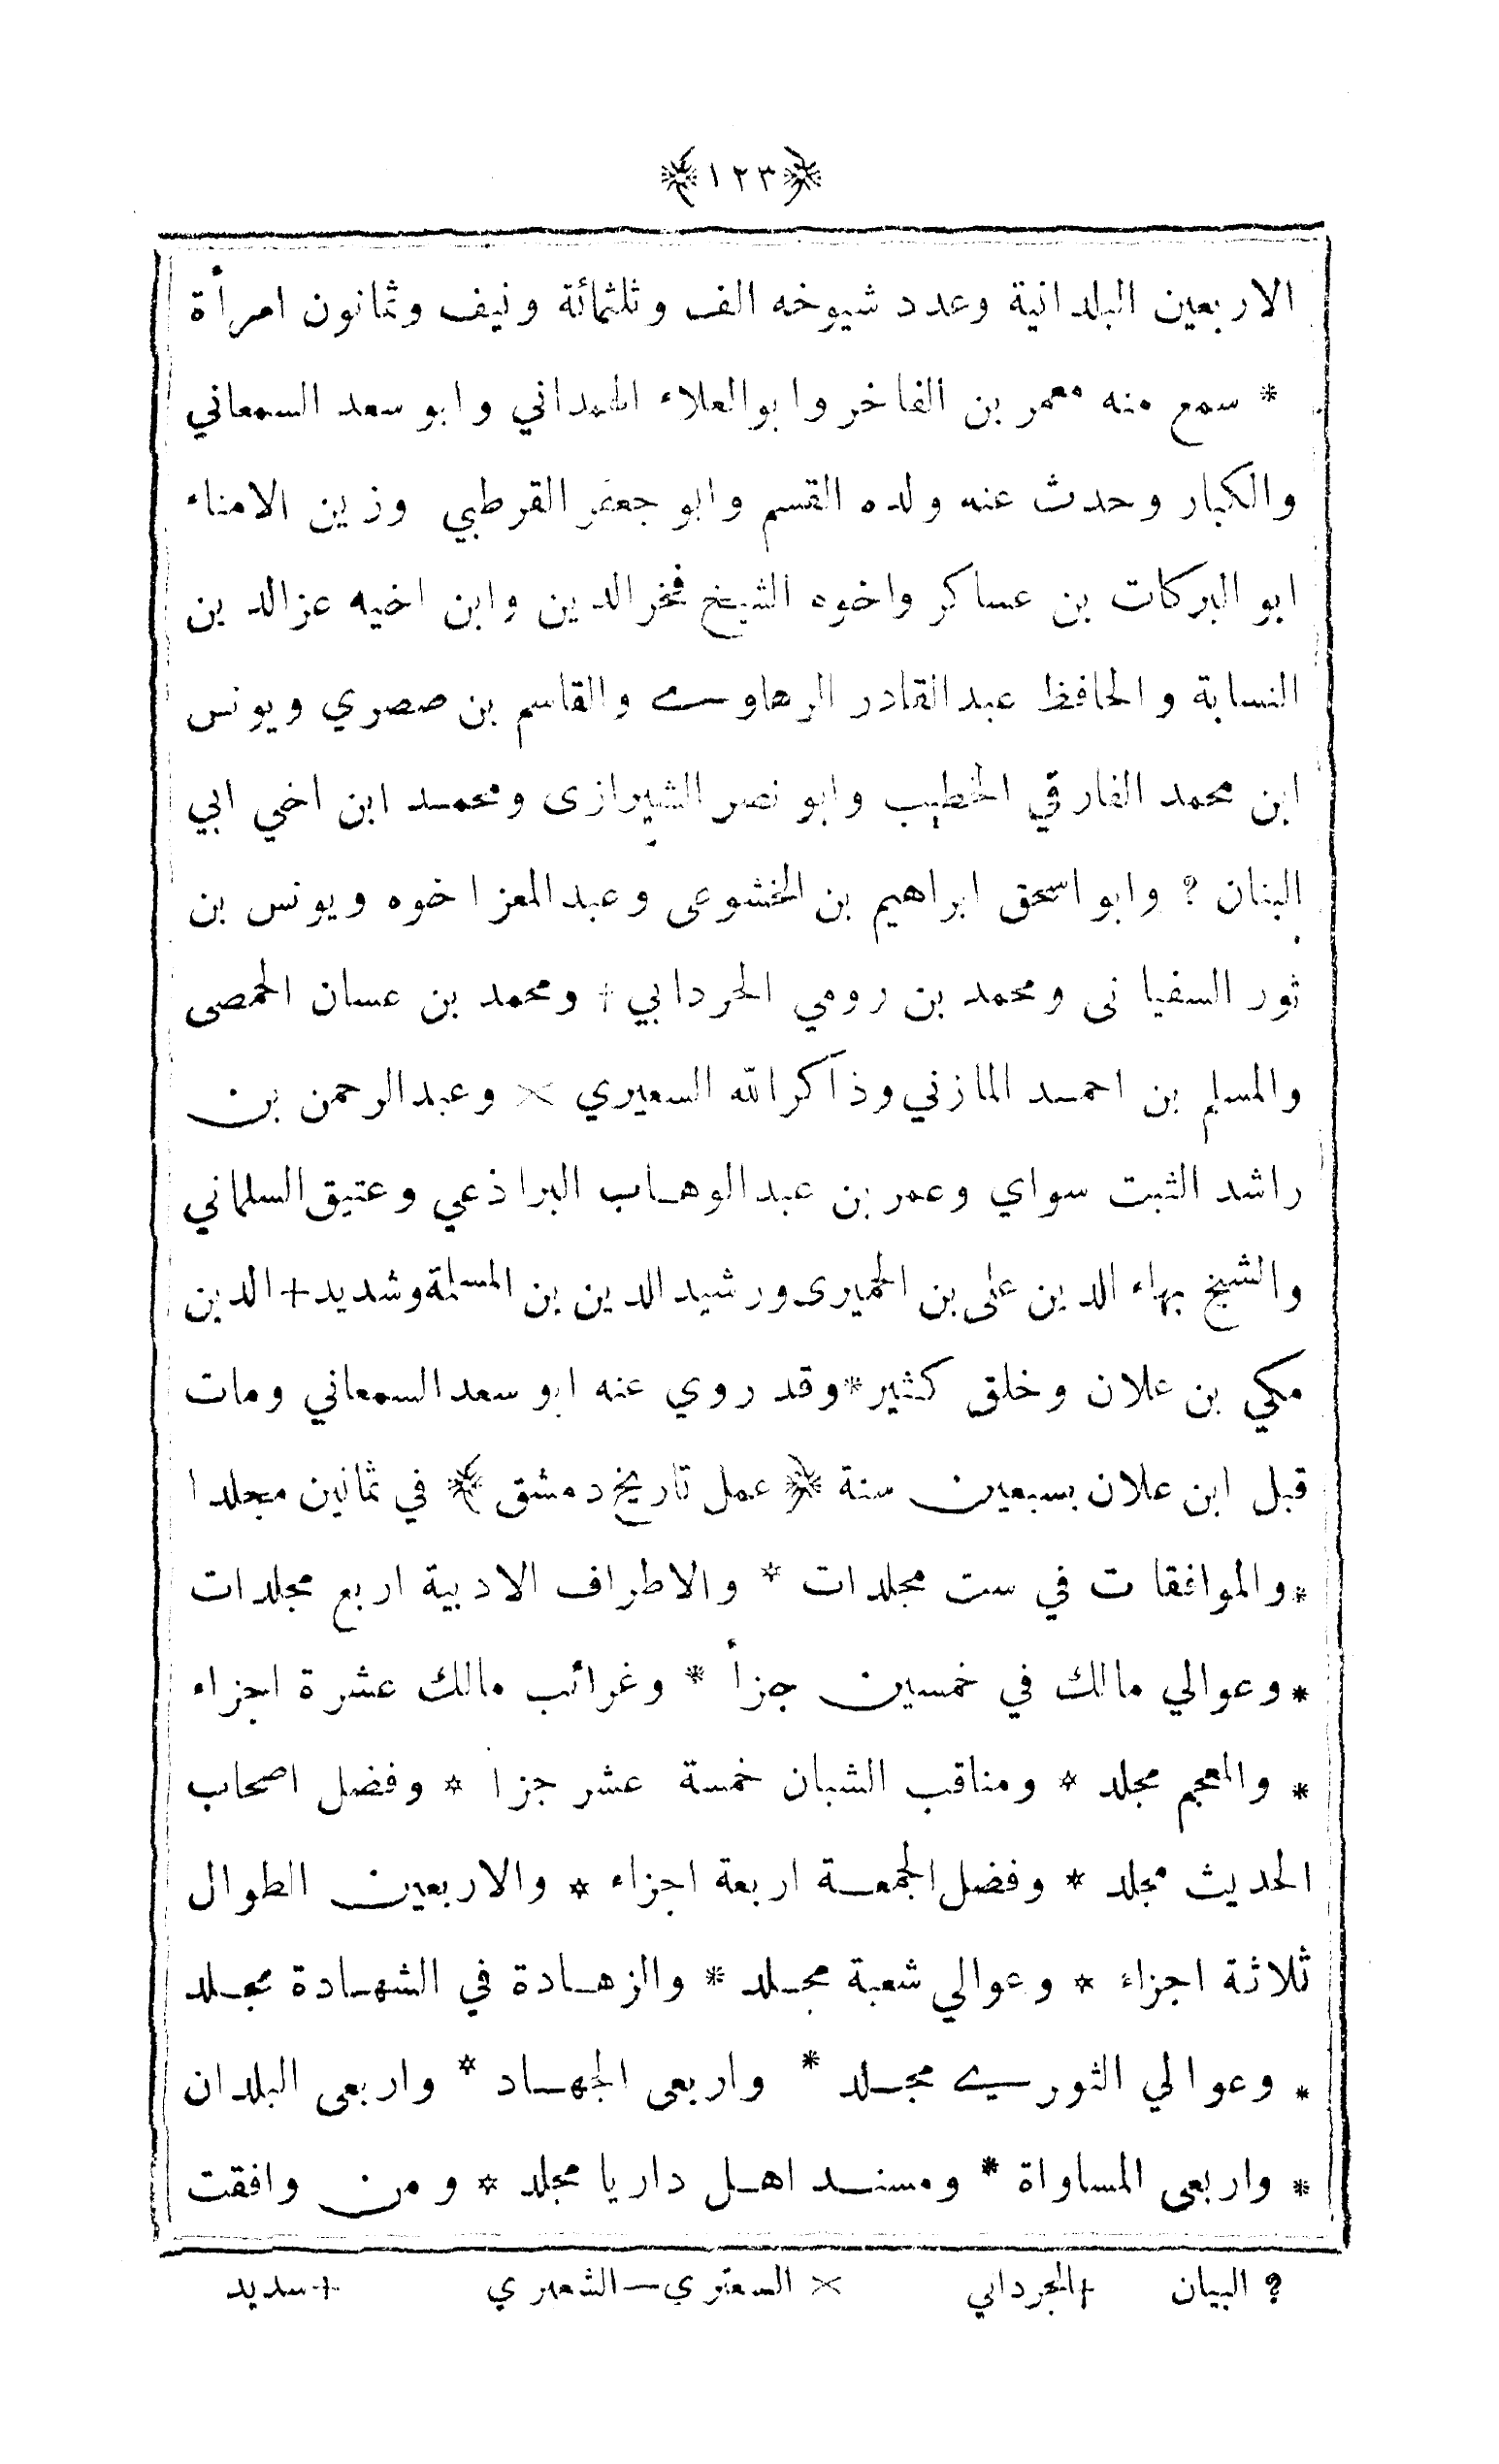 ﴿١٢٣﴾
الاربعين البلدانية وعدد شيوخه الف وثلثمائة ونيف وثمانون امرأة
* سمع منه معمر بن الفاخر وابوالعلاء الهمداني وابو سعد السمعاني
والكبار وحدث عنه ولده القسم وابو جعفر القرطبي وزين الامناء
ابو البركات بن عساكر واخوه الشيخ فخرالدين وابن اخيه عزالد بن
النسابة والحافظ عبدالقادر الرهاوي والقاسم بن صصري ويونس
ابن محمد الفارقي الخطيب وابو نصر الشيرازى ومحمد ابن اخي ابي
البنان ? وابو اسحق ابراهيم بن الخشوعى وعبدالمعز اخوه ويونس بن
ثور السفيانى ومحمد بن رومي الحردابي + ومحمد بن عسان الحمصى
والمسلم بن احمد المازني وذاكرالله السعيري × وعبدالرحمن بن
راشد الثبت سواي وعمر بن عبدالوهاب البراذعي وعتيق السلماني
والشيخ بهاء الدين على بن الحميرى ورشيدالدين بن المسلمة وشديد+الدين
مكي بن علان وخلق كثير*وقد روي عنه ابو سعدالسمعاني ومات
قبل ابن علان بسبعين سنة ﴿ عمل تاريخ دمشق ﴾ في ثمانين مجلدا
*والموافقات في ست مجلدات * والاطراف الادبية اربع مجلدات
*وعوالي مالك في خمسين جزأ * وغرائب مالك عشرة اجزاء
* والمعجم مجلد * ومناقب الشبان خمسة عشر جزا * وفضل اصحاب
الحديث مجلد * وفضل الجمعة اربعة اجزاء * والاربعين الطوال
ثلاثة اجزاء * وعوالي شعبة مجلد * والزهادة في الشهادة مجلد
* وعوالي الثوري مجلد * واربعى الجهاد * واربعى البلدان
* واربعى المساواة * ومسند اهل داريا مجلد * ومن وافقت
? البيان +الجرداني × السعتري—الشعيري +سديد